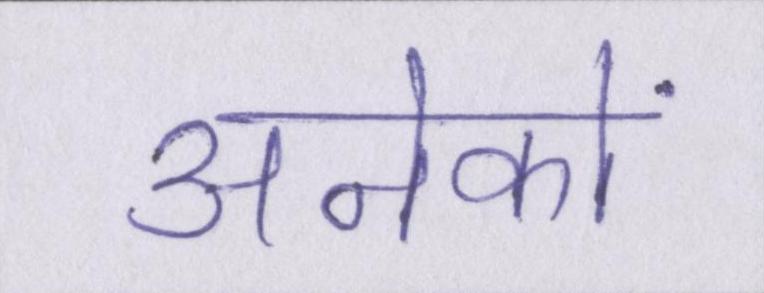 अनेकों